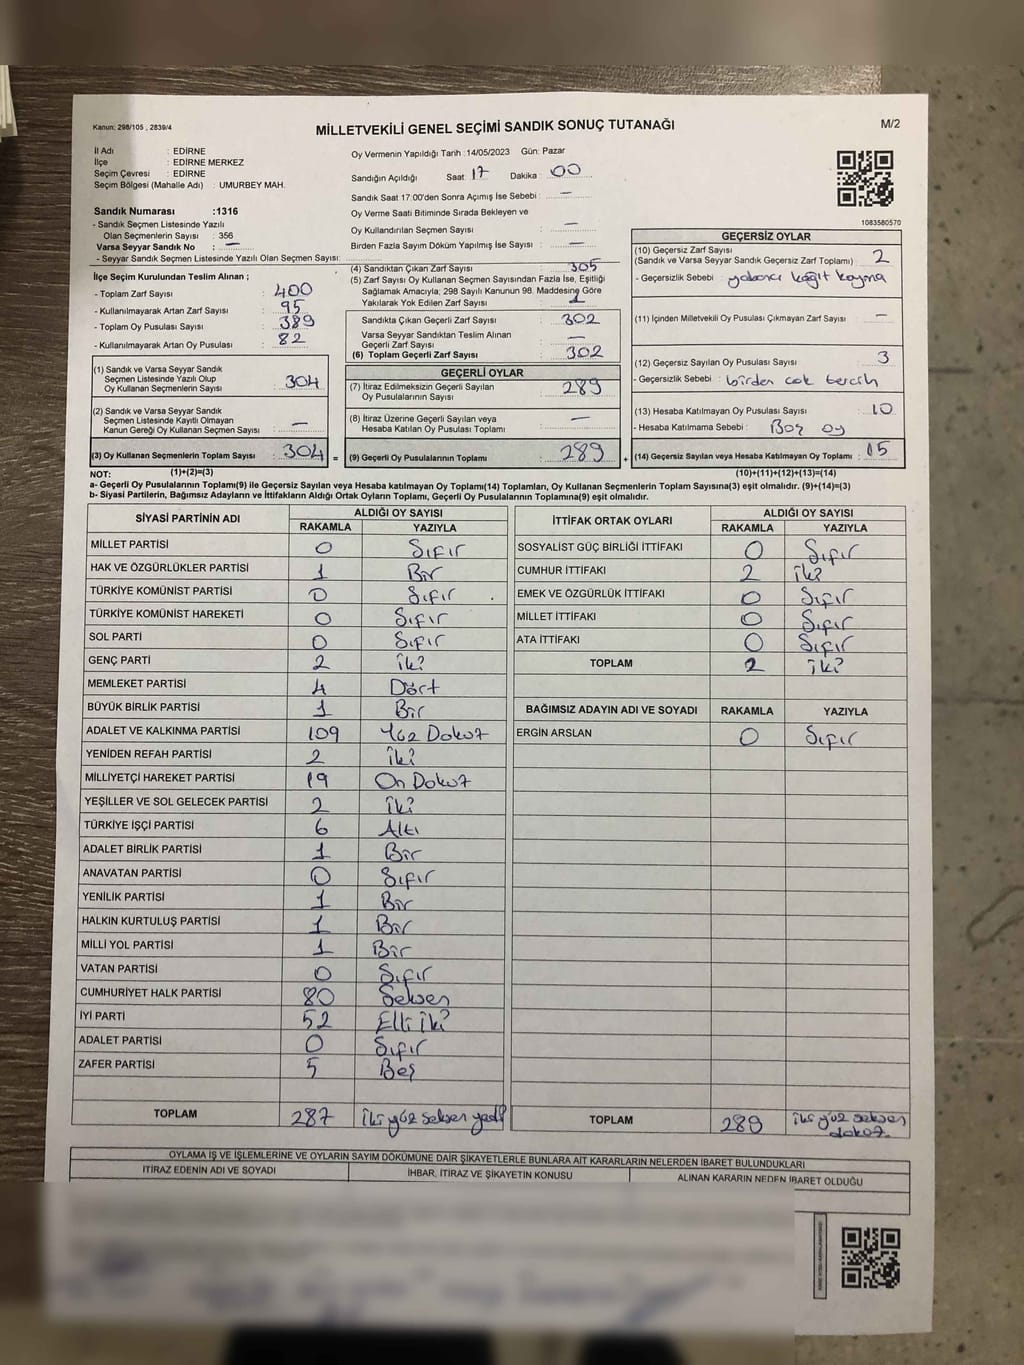 Kanun: 298/105 , 2839/4
MİLLETVEKİLİ GENEL SEÇİMİ SANDIK SONUÇ TUTANAĞI
M/2
İl Adı : EDİRNE
İlçe : EDİRNE MERKEZ
Seçim Çevresi : EDİRNE
Seçim Bölgesi (Mahalle Adı) : UMURBEY MAH.
Sandık Numarası :1316
- Sandık Seçmen Listesinde Yazılı
Olan Seçmenlerin Sayısı : 356
Varsa Seyyar Sandık No : —
- Seyyar Sandık Seçmen Listesinde Yazılı Olan Seçmen Sayısı:
İlçe Seçim Kurulundan Teslim Alınan ;
- Toplam Zarf Sayısı : 400
- Kullanılmayarak Artan Zarf Sayısı : 95
- Toplam Oy Pusulası Sayısı : 389
- Kullanılmayarak Artan Oy Pusulası : 82
(1) Sandık ve Varsa Seyyar Sandık
Seçmen Listesinde Yazılı Olup
Oy Kullanan Seçmenlerin Sayısı : 304
(2) Sandık ve Varsa Seyyar Sandık
Seçmen Listesinde Kayıtlı Olmayan
Kanun Gereği Oy Kullanan Seçmen Sayısı : —
(3) Oy Kullanan Seçmenlerin Toplam Sayısı : 304 =
Oy Vermenin Yapıldığı Tarih :14/05/2023 Gün: Pazar
Sandığın Açıldığı Saat 17 Dakika : 00
Sandık Saat 17.00'den Sonra Açımış İse Sebebi : —
Oy Verme Saati Bitiminde Sırada Bekleyen ve
Oy Kullandırılan Seçmen Sayısı : —
Birden Fazla Sayım Döküm Yapılmış İse Sayısı : —
(4) Sandıktan Çıkan Zarf Sayısı : 305
(5) Zarf Sayısı Oy Kullanan Seçmen Sayısından Fazla İse, Eşitliği
Sağlamak Amacıyla, 298 Sayılı Kanunun 98. Maddesine Göre
Yakılarak Yok Edilen Zarf Sayısı : 1
Sandıkta Çıkan Geçerli Zarf Sayısı : 302
Varsa Seyyar Sandıktan Teslim Alınan
Geçerli Zarf Sayısı : —
(6) Toplam Geçerli Zarf Sayısı : 302
GEÇERLİ OYLAR
(7) İtiraz Edilmeksizin Geçerli Sayılan
Oy Pusulalarının Sayısı : 289
(8) İtiraz Üzerine Geçerli Sayılan veya
Hesaba Katılan Oy Pusulası Toplamı : —
(9) Geçerli Oy Pusulalarının Toplamı : 289 +
1083580570
GEÇERSİZ OYLAR
(10) Geçersiz Zarf Sayısı
(Sandık ve Varsa Seyyar Sandık Geçersiz Zarf Toplamı) : 2
- Geçersizlik Sebebi : yabancı kağıt koyma
(11) İçinden Milletvekili Oy Pusulası Çıkmayan Zarf Sayısı : —
(12) Geçersiz Sayılan Oy Pusulası Sayısı : 3
- Geçersizlik Sebebi : birden çok tercih
(13) Hesaba Katılmayan Oy Pusulası Sayısı : 10
- Hesaba Katılmama Sebebi : Boş oy
(14) Geçersiz Sayılan veya Hesaba Katılmayan Oy Toplamı : 15
NOT: (1)+(2)=(3) (10)+(11)+(12)+(13)=(14)
a- Geçerli Oy Pusulalarının Toplamı(9) ile Geçersiz Sayılan veya Hesaba katılmayan Oy Toplamı(14) Toplamları, Oy Kullanan Seçmenlerin Toplam Sayısına(3) eşit olmalıdır. (9)+(14)=(3)
b- Siyasi Partilerin, Bağımsız Adayların ve İttifakların Aldığı Ortak Oyların Toplamı, Geçerli Oy Pusulalarının Toplamına(9) eşit olmalıdır.
SİYASİ PARTİNİN ADI ALDIĞI OY SAYISI
RAKAMLA YAZIYLA
MİLLET PARTİSİ 0 Sıfır
HAK VE ÖZGÜRLÜKLER PARTİSİ 1 Bir
TÜRKİYE KOMÜNİST PARTİSİ 0 Sıfır
TÜRKİYE KOMÜNİST HAREKETİ 0 Sıfır
SOL PARTİ 0 Sıfır
GENÇ PARTİ 2 İki
MEMLEKET PARTİSİ 4 Dört
BÜYÜK BİRLİK PARTİSİ 1 Bir
ADALET VE KALKINMA PARTİSİ 109 Yüz Dokuz
YENİDEN REFAH PARTİSİ 2 İki
MİLLİYETÇİ HAREKET PARTİSİ 19 On Dokuz
YEŞİLLER VE SOL GELECEK PARTİSİ 2 İki
TÜRKİYE İŞÇİ PARTİSİ 6 Altı
ADALET BİRLİK PARTİSİ 1 Bir
ANAVATAN PARTİSİ 0 Sıfır
YENİLİK PARTİSİ 1 Bir
HALKIN KURTULUŞ PARTİSİ 1 Bir
MİLLİ YOL PARTİSİ 1 Bir
VATAN PARTİSİ 0 Sıfır
CUMHURİYET HALK PARTİSİ 80 Seksen
İYİ PARTİ 52 Elli iki
ADALET PARTİSİ 0 Sıfır
ZAFER PARTİSİ 5 Beş
TOPLAM 287 İki yüz seksen yedi
İTTİFAK ORTAK OYLARI ALDIĞI OY SAYISI
RAKAMLA YAZIYLA
SOSYALİST GÜÇ BİRLİĞİ İTTİFAKI 0 Sıfır
CUMHUR İTTİFAKI 2 İki
EMEK VE ÖZGÜRLÜK İTTİFAKI 0 Sıfır
MİLLET İTTİFAKI 0 Sıfır
ATA İTTİFAKI 0 Sıfır
TOPLAM 2 İki
BAĞIMSIZ ADAYIN ADI VE SOYADI RAKAMLA YAZIYLA
ERGİN ARSLAN 0 Sıfır
TOPLAM 289 İki yüz seksen
dokuz
OYLAMA İŞ VE İŞLEMLERİNE VE OYLARIN SAYIM DÖKÜMÜNE DAİR ŞİKAYETLERLE BUNLARA AİT KARARLARIN NELERDEN İBARET BULUNDUKLARI
İTİRAZ EDENİN ADI VE SOYADI İHBAR, İTİRAZ VE ŞİKAYETİN KONUSU ALINAN KARARIN NEDEN İBARET OLDUĞU